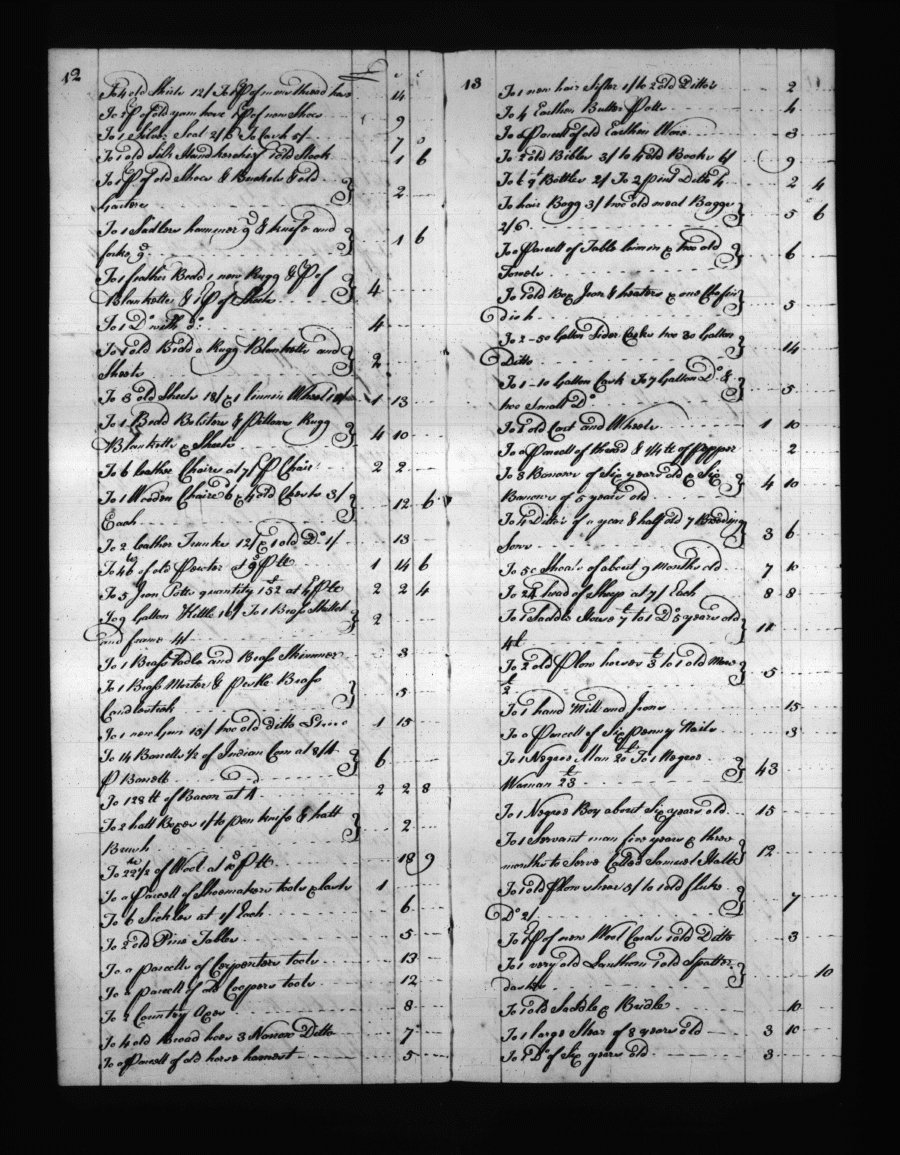 12
£ s d
To 4 old Shirts 12/ To 1 P of new thread hose 14
To 2 P of old yarn hose 1 P of new Shoes 9
To 1 Silver Seal 2/6 To Cash 5/ 7 6
To 1 old Silk Handkerchief 1 old Stock 1 6
To 1 P of old Shoes & Buckels & old } 2
Garters
To 1 Sadlers hammer 9d & knife and } 1 6
forke 9d
To 1 feather Bedd 1 new Rugg & P of } 4
Blanketts & 1 P of Sheets
To 1 Do with Do 4
To 1 old Bedd a Rugg Blanketts and } 2
Sheets
To 8 old Sheets 18/ & 1 linnin Wheel 1 13
To 1 Bedd Bolsters & Pillows Rugg } 4 10
Blanketts & Sheets
To 6 leather Chairs at 7/ P Chair 2 2
To 1 Wooden Chaire 6d & 4 old Chests 3/ } 12 6
Each
To 2 leather Trunks 12/ & 1 old Do 1/ 13
To 46 w of old Pewter at 9d P tt 1 14 6
To 5 Iron Potts quantity 152 tt at P tt 2 2 4
To 9 Gallon Kittle 16/ To 1 Brass Skillet } 2
and frame 4/
To 1 Brass Ladle and Brass Skimmer 3
To 1 Brass Morter & Pestle Brass } 5
Candlestick
To 1 new Gun 15/ two old ditto 1 15
To 14 Barrells 1/2 of Indian Corn at 8/4 } 6
P Barrell
To 128 tt of Bacon at 4d 2 2 8
To 2 hatt Boxes 1/ to pen knife & hatt } 2
Brush
To 22 1/2 w of Wool at 10d P tt 18 9
To a Parcell of Shoemakers tools & lasts 1
To 6 Sickles at 1/ Each 6
To 2 old Pine Tables 5
To a parcelle of Carpenters tools 13
To a parcell of old Coopers tools 12
To 2 Country Axes 8
To 4 old Broad hoes 3 Narrow Ditto 7
To a Parcell of old horse harnest 5
13
To 1 new hair Sifter 1/ to 2 old Ditto 2
To 4 Earthen Butter Potts 4
To a Parcell of old Earthen Ware 3
To 2 old Bibles 3/ to 4 old Books 6/ 9
To 6 qt Bottles 2/ To 2 pint Ditto 4 2 4
To hair Bagg 3/ two old meal Baggs } 5 6
2/6
To a Parcell of Table linnin & two old } 6
Towels
To 1 old Box Iron & heaters & one Chafin } 5
Dish
To 2 - 50 Gallon Sider Casks two 30 Gallon } 14
Ditto
To 1 - 10 Gallon Cask To 7 Gallon Do & } 5
two Small Do
To 1 old Cart and Wheels 1 10
To a Parcell of thread & 1/4 tt of Pepper 2
To 3 Barrows of Six years old & Six } 4 10
Barrows of 5 years old
To 4 Ditto of a year & half old 7 Breeding } 3 6
Sows
To 50 Shoats of about 9 Months old 7 10
To 24 head of Sheep at 7/ Each 8 8
To 1 Saddle Horse £7 to 1 Do 5 years old } 11
4£
To 2 old Plow horses £3 to 1 old Mare } 5
£2
To 1 hand Mill and Irons 15
To a Parcell of Six penny Nails 3
To 1 Negroe Man £20 To 1 Negroe } 43
Woman £23
To 1 Negroe Boy about Six years old 15
To 1 Servant man five years & three } 12
months to Serve Called Samuel
To 1 old Plow share 5/ to 1 old fluke } 7
Do 2/
To 1 P of new Wool Cards 1 old Ditto 3
To 1 very old Lanthorn 1 old Spatter } 10
dashes
To 1 old Saddle & Bridle 10
To 1 large Stear of 8 years old 3 10
To 1 Do of Six years old 3